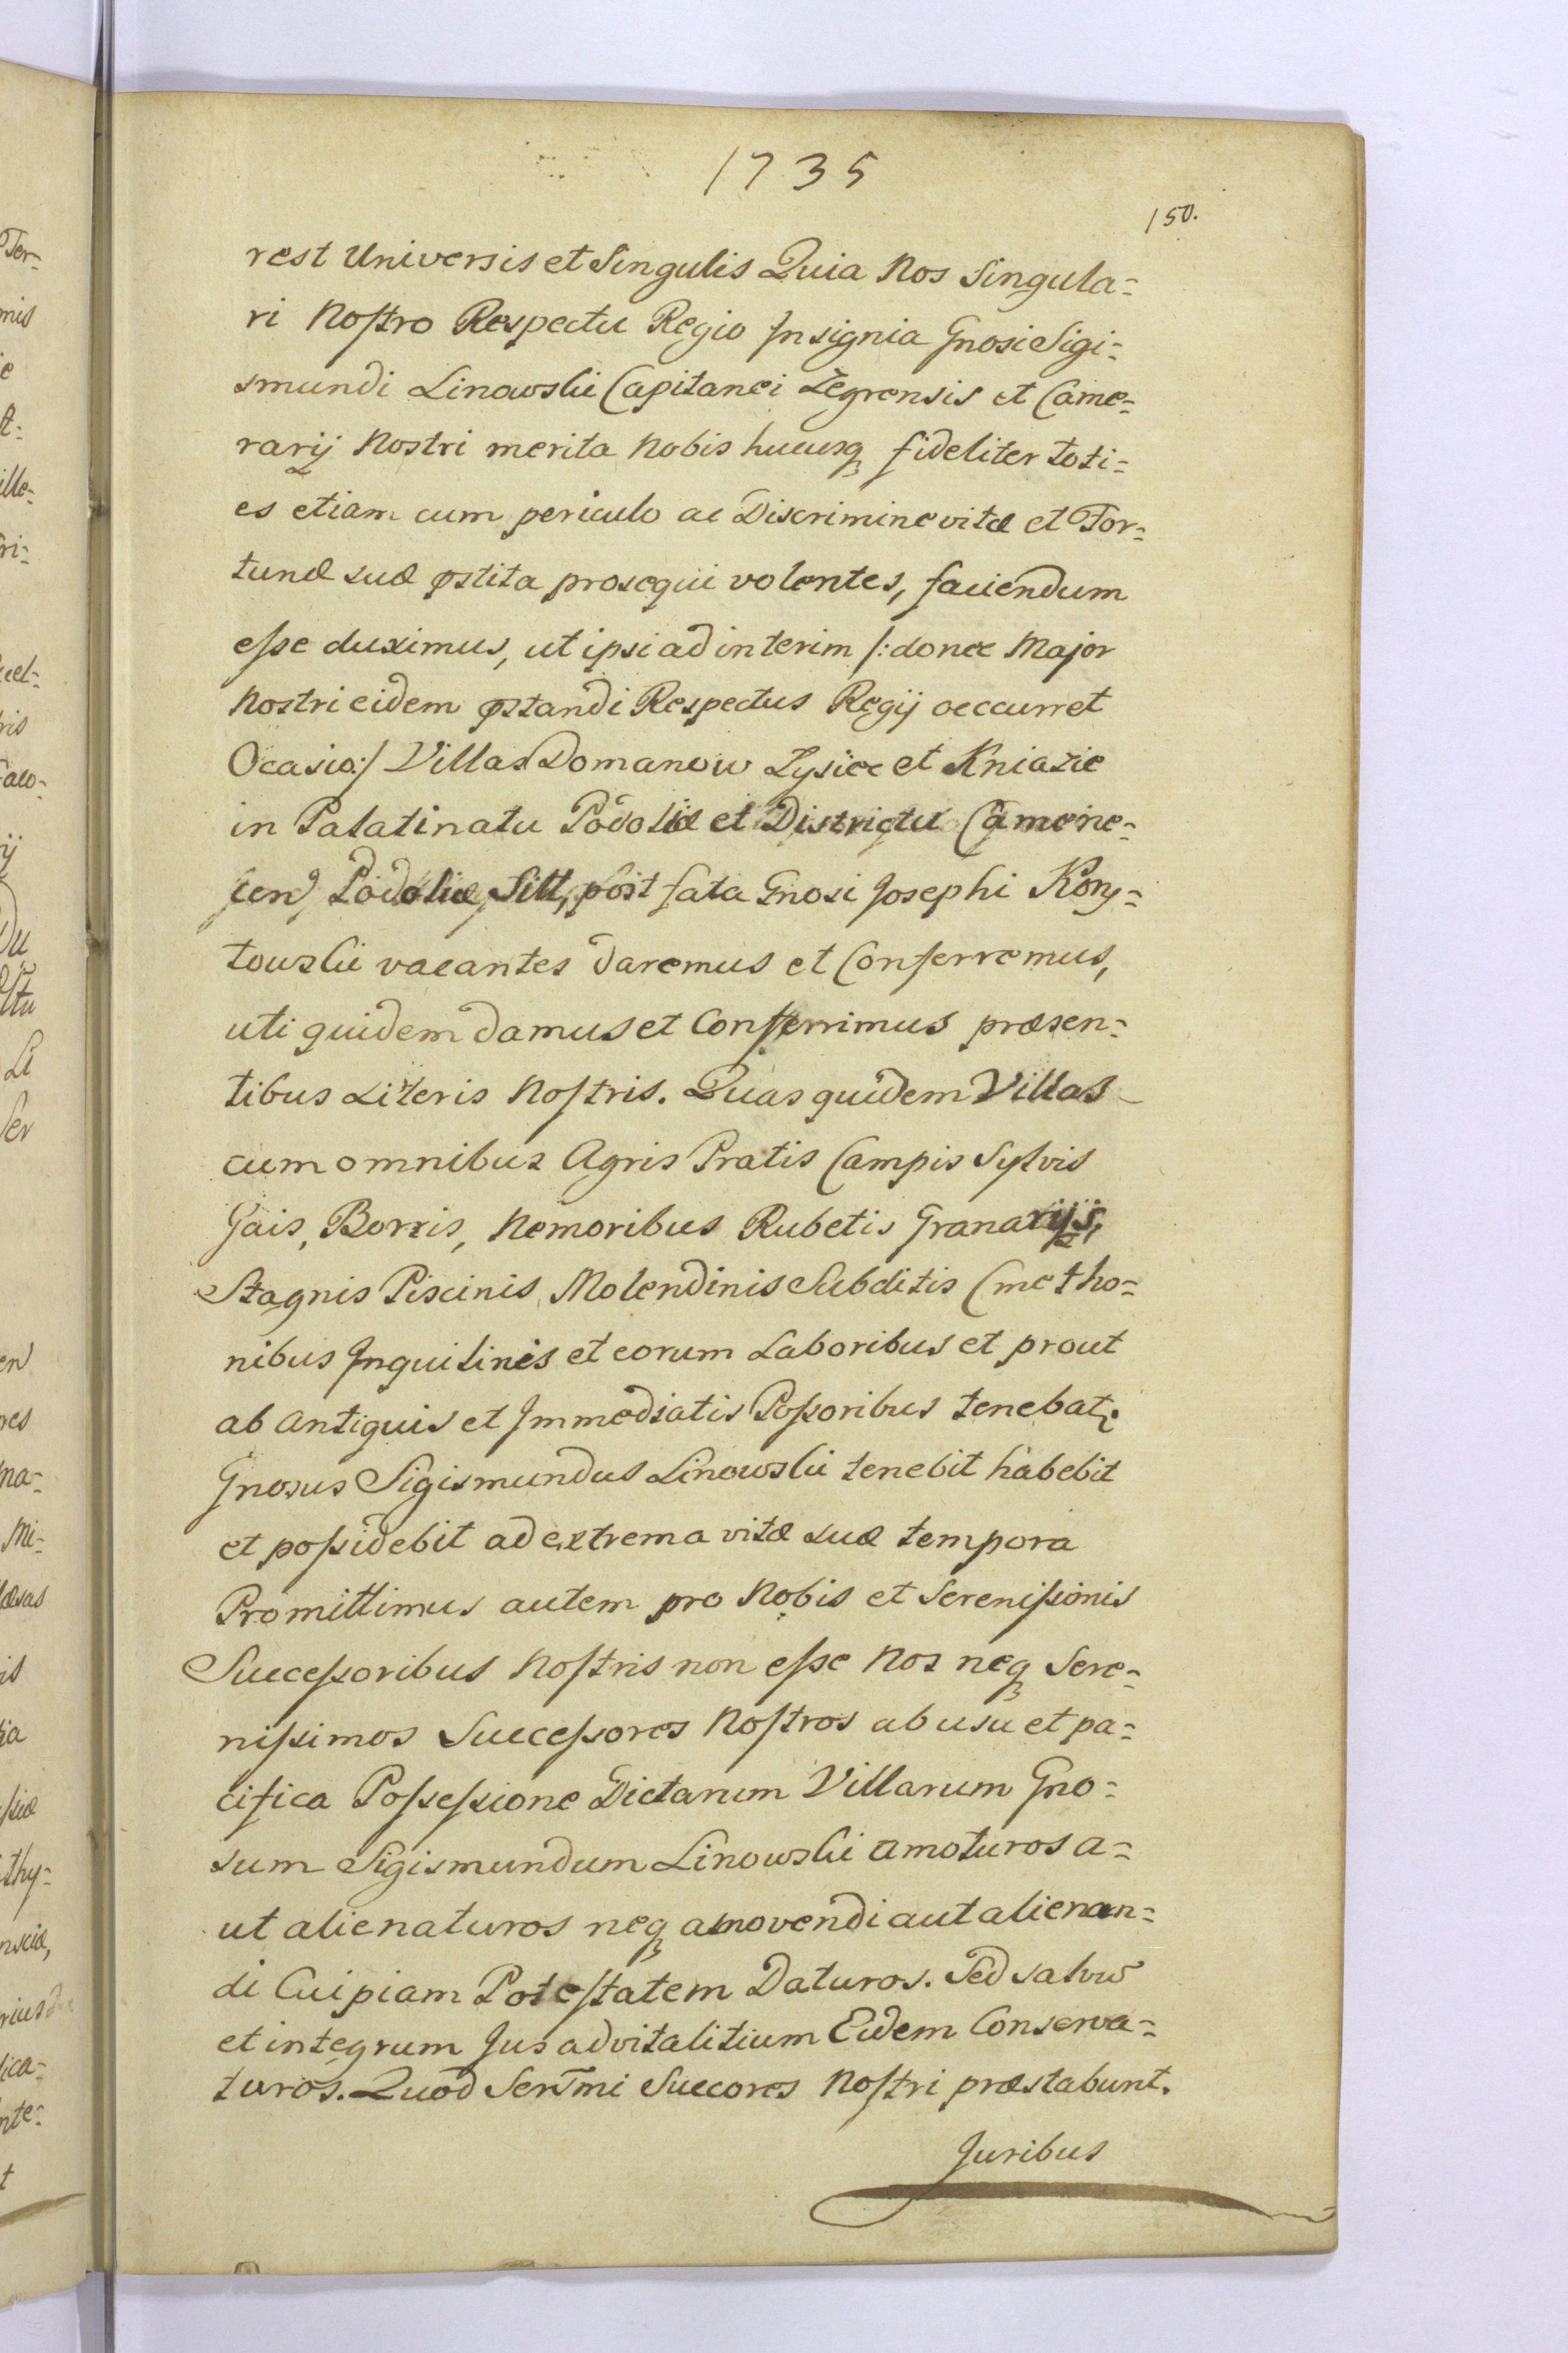 1735
150.
rest Universis et Singulis Quia Nos Singula=
ri Nostro Respectu Regio Insignia Gnosi Sigi=
smundi Linowski Capitanei Zegrensis et Came=
rarij Nostri merita Nobis hucusq fideliter toti=
es etiam cum periculo ac Discrimine vitæ et For=
tunæ suæ pstita prosequi volentes, faciendum
esse duximus, ut ipsi ad interim /: donec Major
Nostri eidem pstandi Respectus Regij occurret
Ocasio :/ Villas Domanow Łysiec et Kniazie
in Palatinatu Podoliæ et Districtu Camene=
cen Podoliæ Sitt, post fata Gnosi Josephi Kony=
towski vacantes daremus et Conferremus,
uti quidem damus et Conferrimus præsen=
tibus Literis Nostris. Quas quidem Villas
cum omnibus Agris Pratis Campis Sylvis
Gais, Borris, Nemoribus Rubetis Granarijs,
Stagnis Piscinis, Molendinis Subditis Cmetho=
nibus Inquilinis et eorum Laboribus et prout
ab antiquis et Immediatis Possoribus tenebat,
Gnosus Sigismundus Linowski tenebit habebit
et possidebit ad extrema vitæ suæ tempora
Promittimus autem pro Nobis et Serenissimis
Successoribus Nostris non esse Nos neq Sere=
nissimos Successores Nostros ab usu et pa=
cifica Possessione Dictarum Villarum Gno=
sum Sigismundum Linowski amoturos a=
ut alienaturos neq amovendi aut alienan=
di Cuipiam Potestatem Daturos. Sed salvũ
et integrum Jus advitalitium Eidem Conserva=
turos. Quod Serm̃i Succores Nostri præstabunt.
Juribus